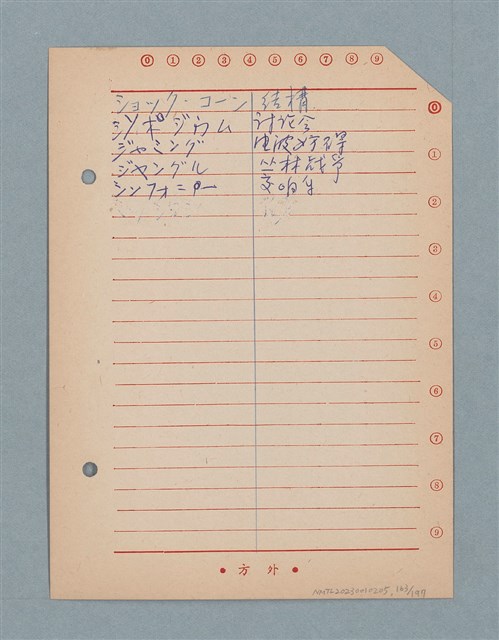 0 1 2 3 4 5 6 7 8 9
ショック・コーン 結構
シンポジウム 讨论会
ジャミング 电波妨碍
ジャングル 丛林战争
シンフォニー 交响乐
0
1
2
2
4
5
6
7
8
9
• 方 外 •
NMTL20230010205, 163/197